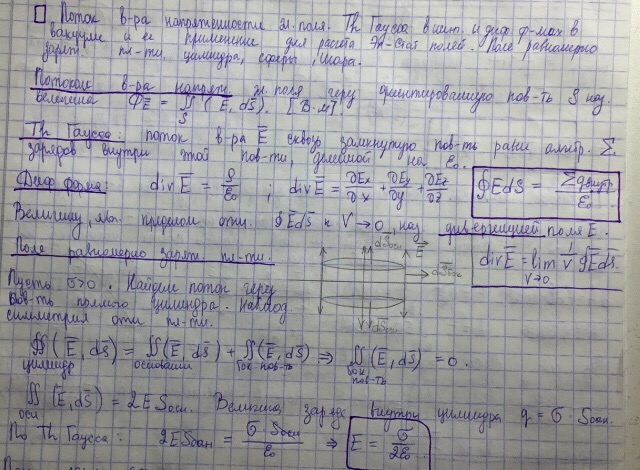 Поток в-ра напряженности эл. поля. Th Гаусса в инт. и диф. ф-мах в
вакууме и её применение для расчета Эл-Стат полей. Поле равномерно
заряж пл-ти, цилиндра, сферы, шара.
Потоком в-ра напряж эл. поля через ориентированную пов-ть S наз.
величина Φ_E = ∬_S (E̅, dS̅). [В·м].
Th Гаусса: поток в-ра E̅ сквозь замкнутую пов-ть равен алгебр. Σ
зарядов внутри этой пов-ти, делённой на ε₀.
∮EdS = Σq внутр / ε₀
Диф форма: div E̅ = ρ/ε₀ ; div E̅ = ∂Ex/∂x + ∂Ey/∂y + ∂Ez/∂z.
Величину, явл. пределом отн. ∮E̅dS̅ к V→0, наз дивергенцией поля E.
div E̅ = lim V→0 1/V ∮E̅dS̅.
Поле равномерно заряж пл-ти.
dS̅осн E̅
dS̅бок
dS̅осн
Пусть σ>0. Найдём поток через
пов-ть прямого цилиндра.
симметрия отн пл-ти.
∯ цилиндр (E̅, dS̅) = ∬ основания (E̅, dS̅) + ∬ бок. пов-ть (E̅, dS̅) ⇒ ∬ бок пов-ть (E̅, dS̅) = 0.
∬ осн (E̅, dS̅) = 2E Sосн. Величина заряда внутри цилиндра q = σ · Sосн.
По Th Гаусса: 2E Sосн = σ Sосн / ε₀ ⇒ E = σ / 2ε₀